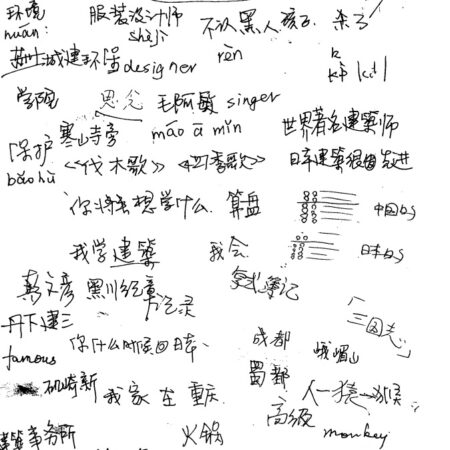 环境 服装设计师 不认黑人孩子. 杀了
huán: shèjì
苏州城建环保 designer rèn k
学院 思念 毛阿敏 singer
保护 寒山寺旁 máo ā mǐn 世界著名建筑师
bǎo hù 《伐木歌》《四季歌》 日本建筑很先进
你将来想学什么. 算盘 中国的
我学建筑 我会 日本的
黑川纪章 笔记
丹下健三 记录 「三国志」
famous 你什么时候回日本. 成都 峨嵋山
矶崎新 我家在重庆 蜀都 人—猿—猴
高级
建筑事务所 火锅 monkey